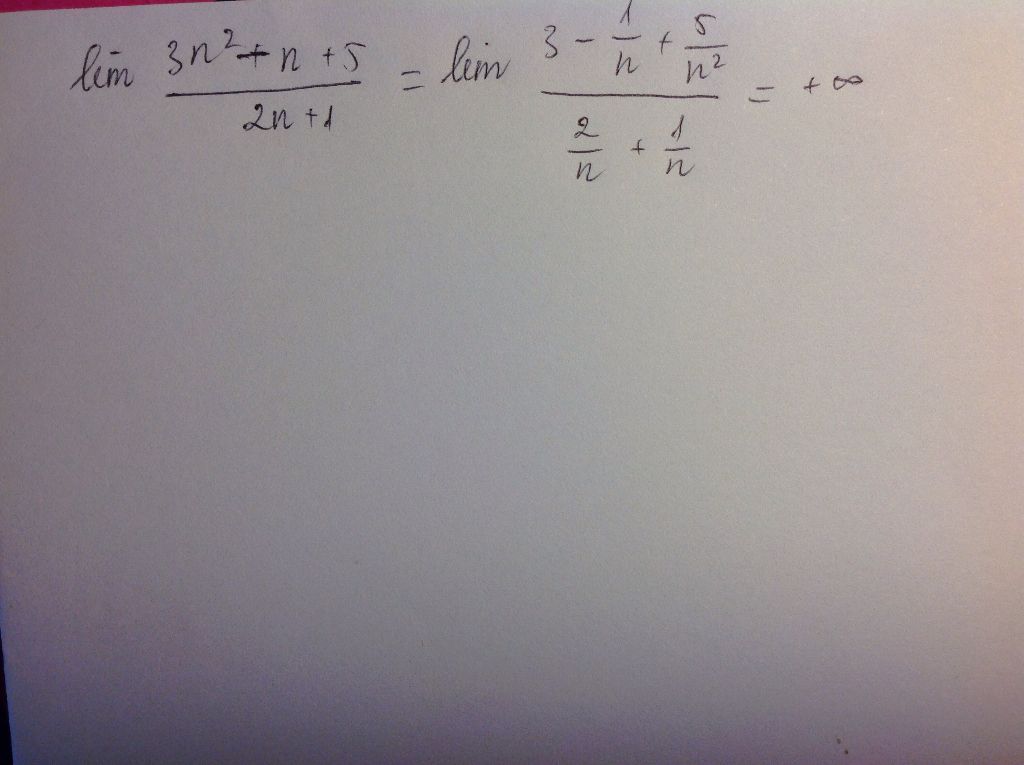 lim (3n² + n + 5)/(2n + 1) = lim (3 - 1/n + 5/n²)/(2/n + 1/n) = +∞